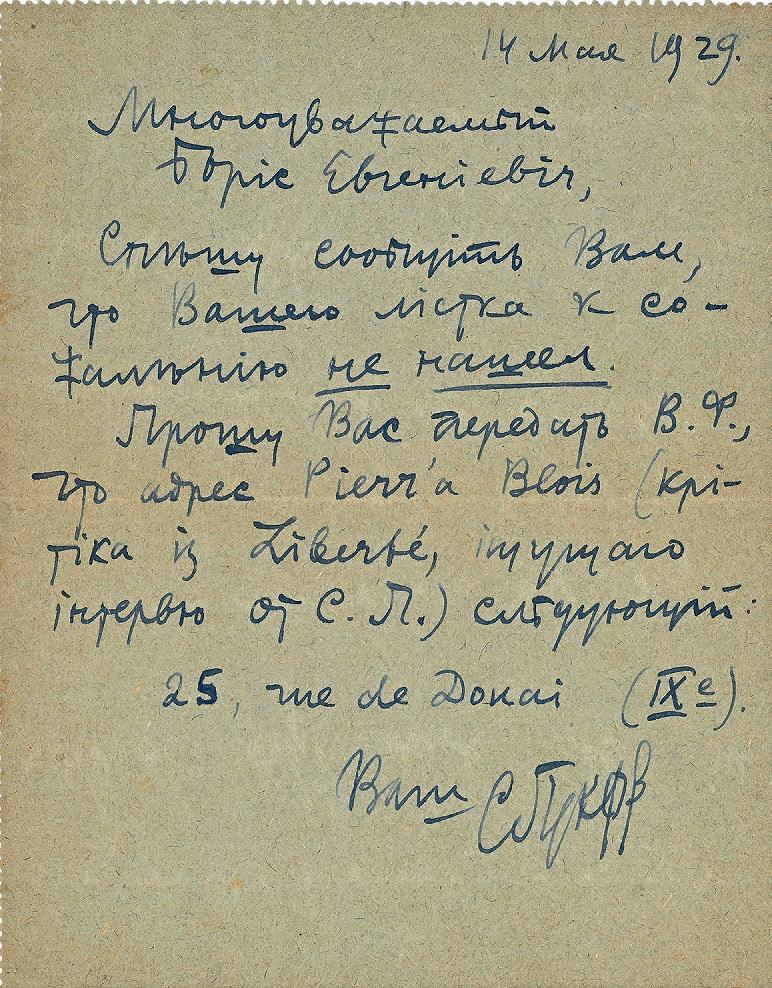 14 Мая 1929.
Многоуважаемый
Борiс Евгенiевiч,
Спѣшу сообщiть Вам,
что Вашего лiстка к со-
жалѣнiю не нашел.
Прошу Вас передать В. Ф.,
что адрес Pierr'а Blois (крi-
тiка iз Liberté, iщущаго
iнтервю от С. П.) слѣдующiй:
25, rue de Douai (IXe).
Ваш